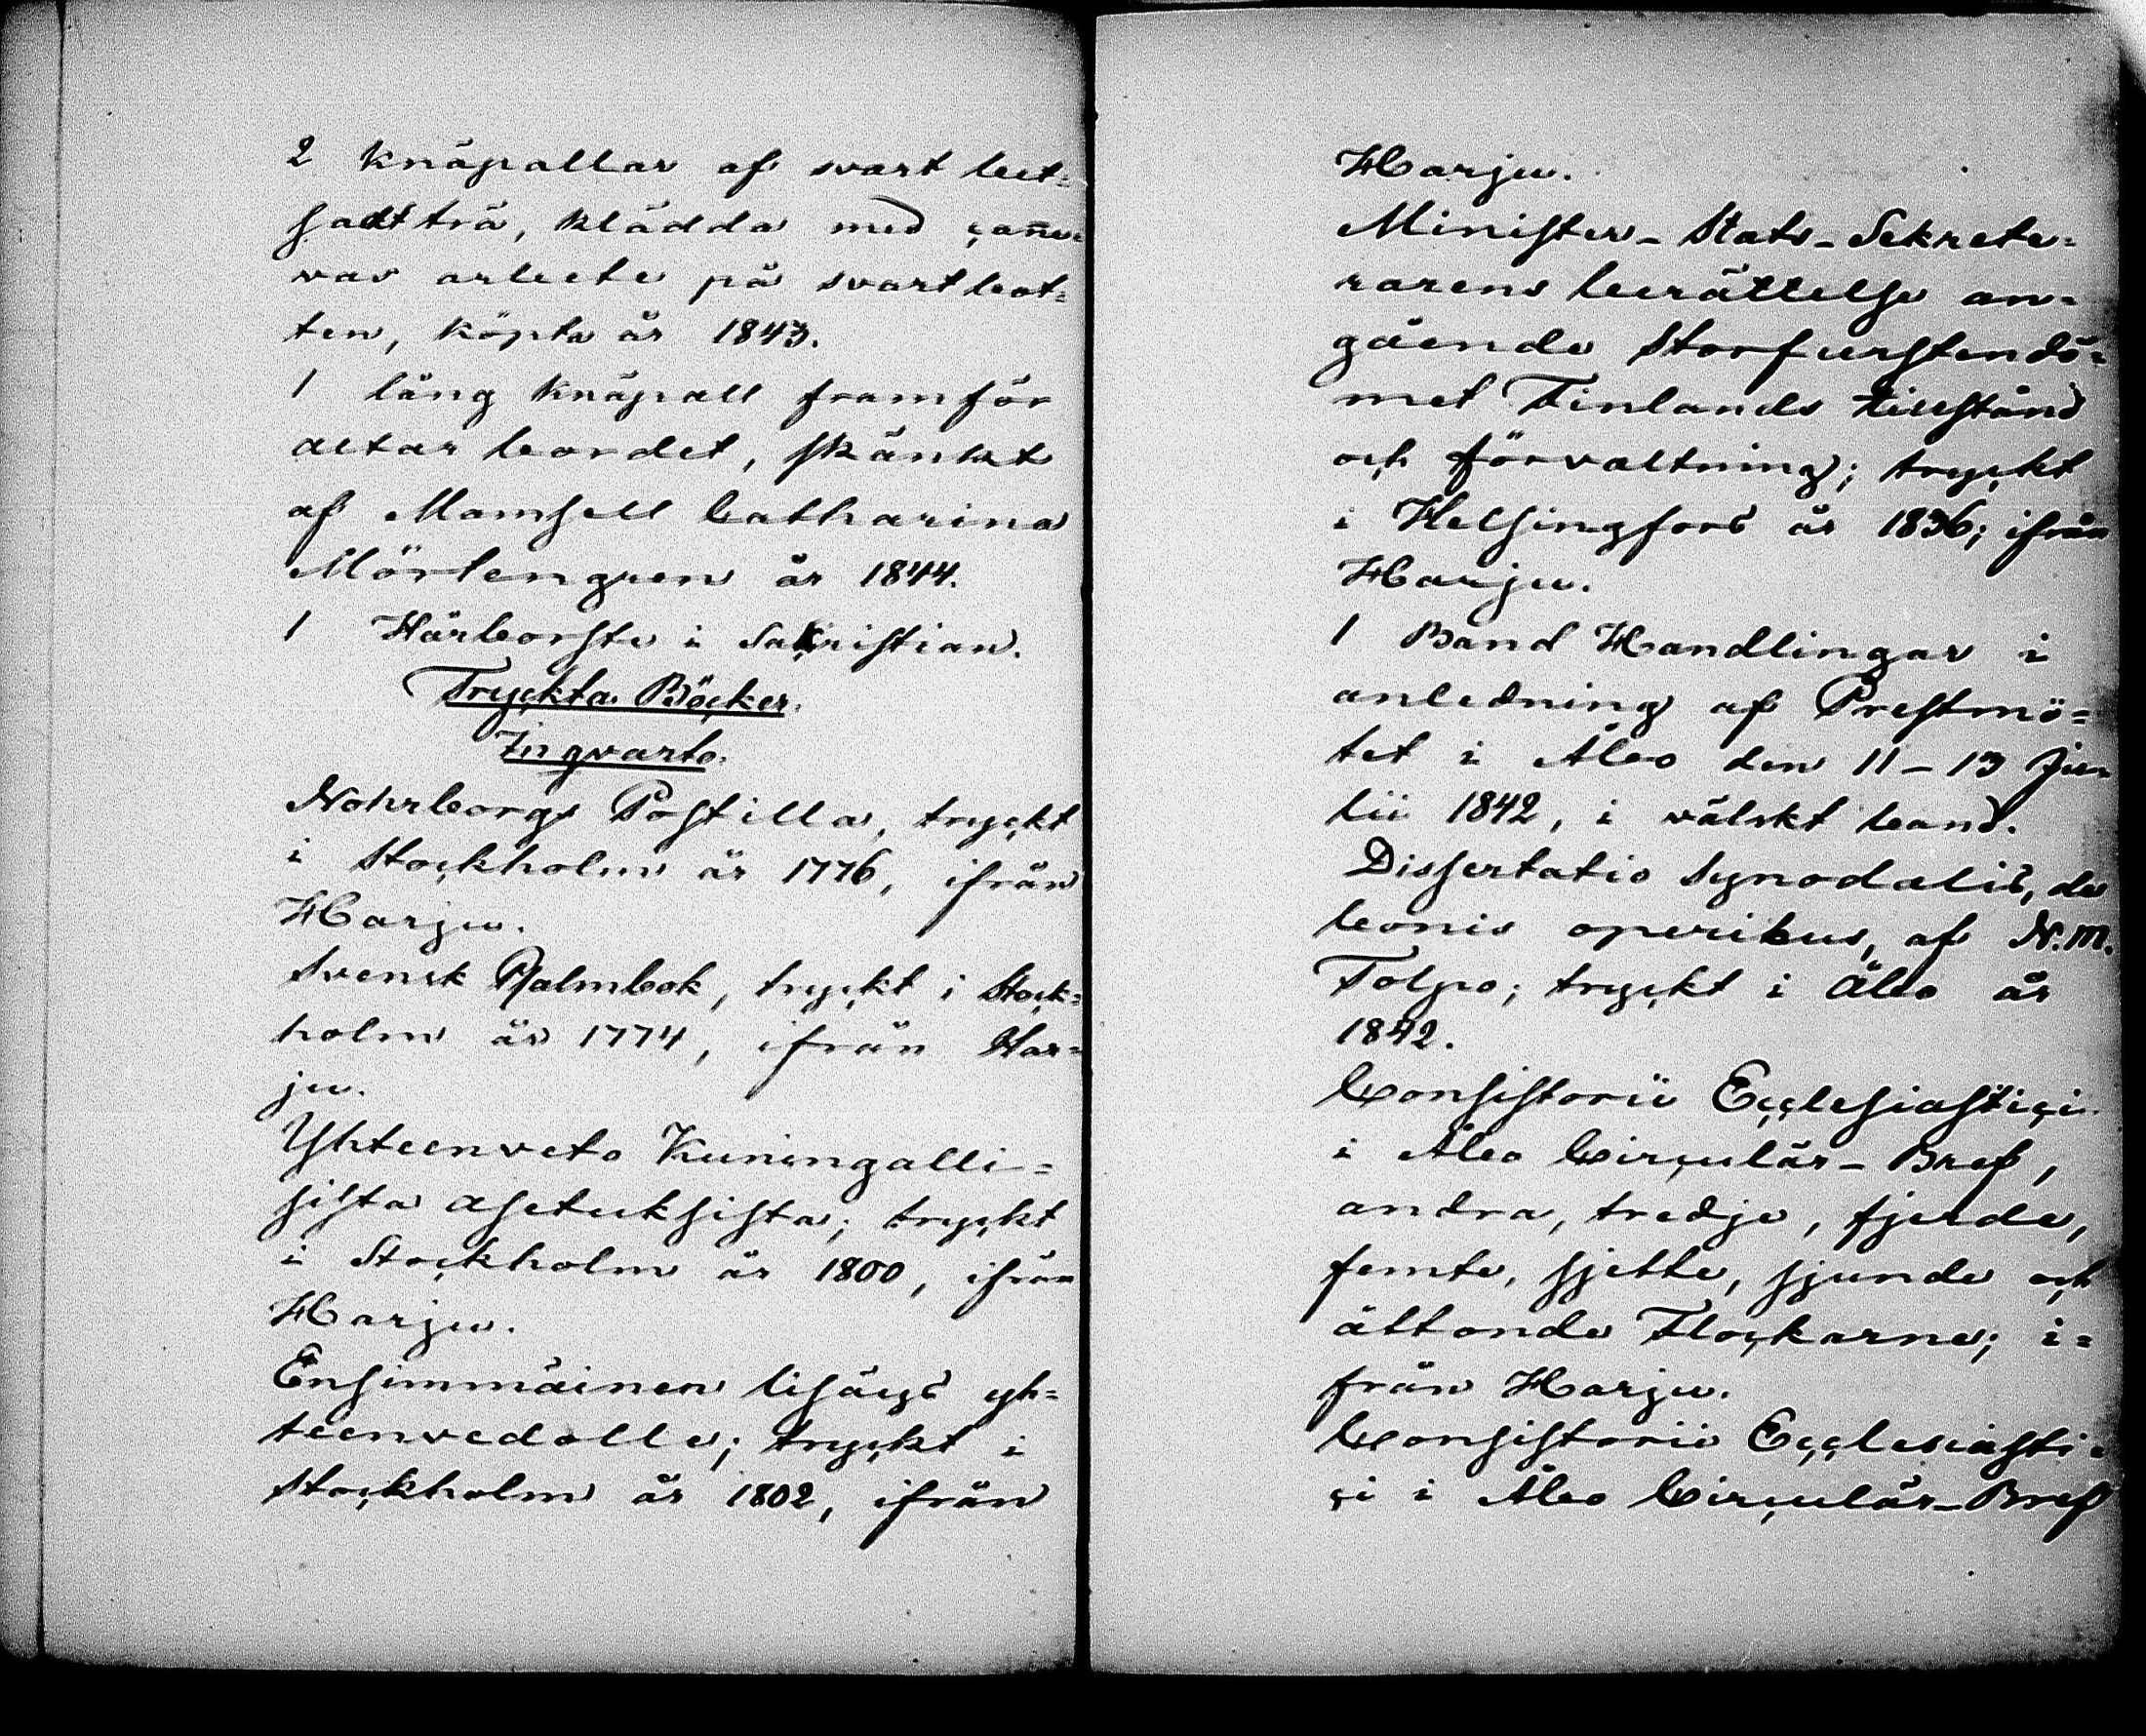 2 Knäpallar af svart bet=
satt trä, klädda med canne=
vas arbete på svart bot=
ten, köpta år 1843.
1 lång Knäpall framför
altar bordet, skänkt
af Mamsell Catharina
Mörtengren år 1844.
1 Hårborste i Sakristian.
Tryckta Böcker.
In qvarto.
Nohrborgs Postilla, tryckt
i Stockholm år 1776, ifrån
Harju.
Svensk Psalmbok, tryckt i Stock=
holm år 1774, ifrån Har=
ju.
Yhteenveto Kuningalli=
sista asetuksista; tryckt
i Stockholm år 1800, ifrån
Harju.
Ensimmäinen lisäys yh=
teenvedolle; tryckt i
Stockholm år 1802, ifrån
Harju.
Minister-Stats-Sekrete=
rarens berättelse an=
gående Storfurstendö=
met Finlands tillstånd
och förvaltning; tryckt
i Helsingfors år 1836; ifrån
Harju.
1 Band Handlingar i
anledning af Prestmö=
tet i Åbo den 11-13 Ju=
lii 1842, i wälskt band.
Dissertatio Synodalis, de
bonis operibus, af N.M.
Tolpo; tryckt i Åbo år
1842.
Consistorii Ecclesiastici
i Åbo Circulär-Bref,
andra, tredje, fjerde,
femte, sjette, sjunde och
åttonde Flockarne; i=
från Harju.
Consistorii Ecclesiasti=
ci i Åbo Circulär-Bref